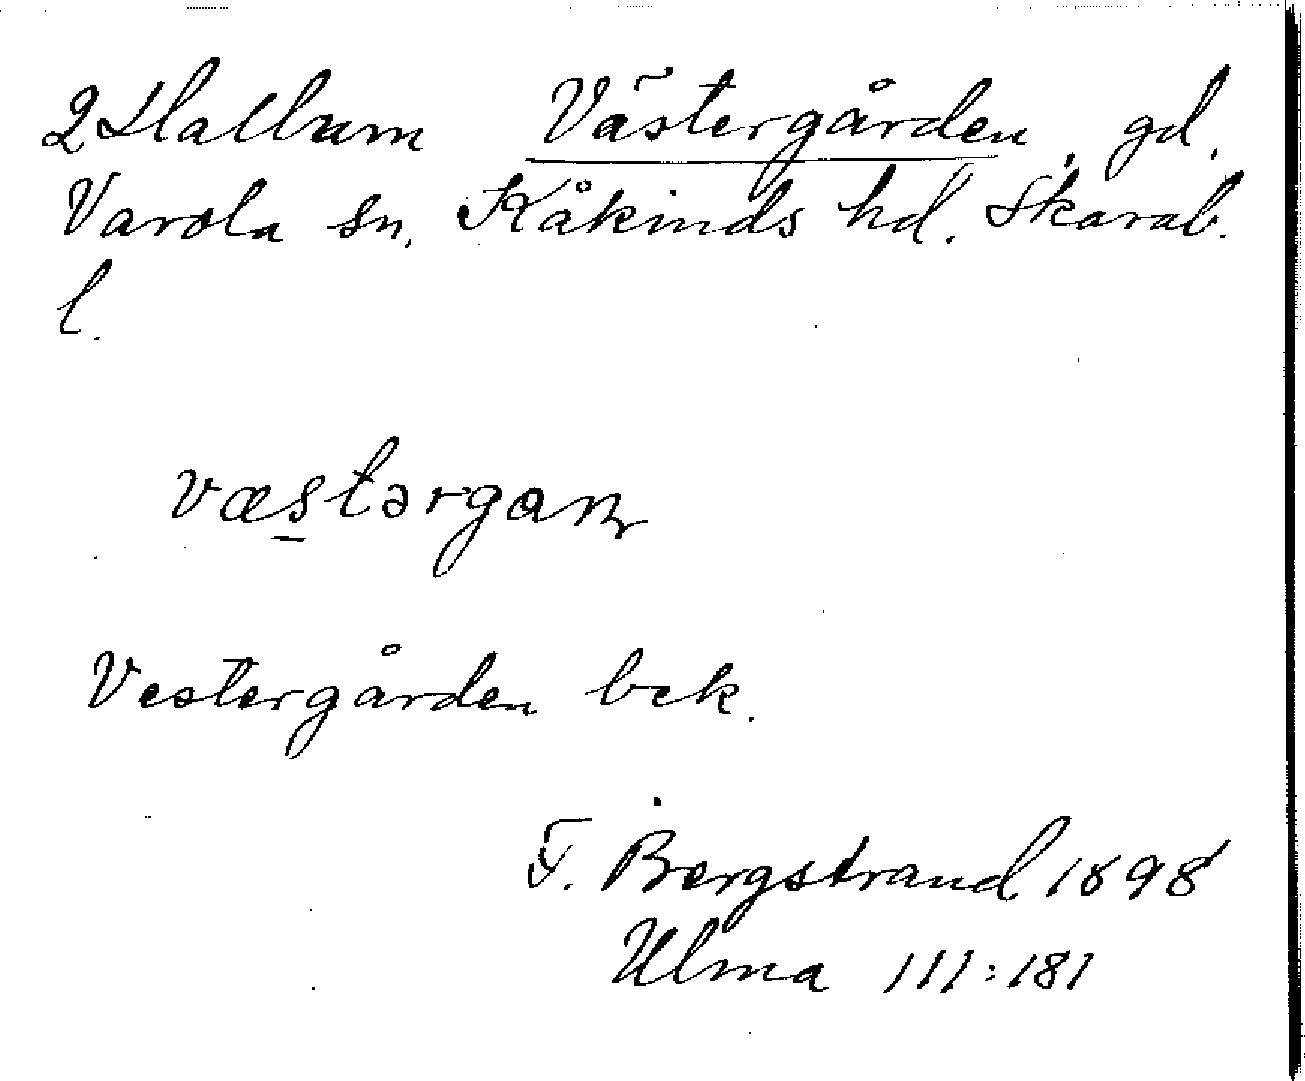 2 Hallum Västergården, gd.
Varola sn. Kåkinds hd. Skarab.
l.
væstərgan
Vestergården bek.
F. Bergstrand 1898
Ulma 111:181